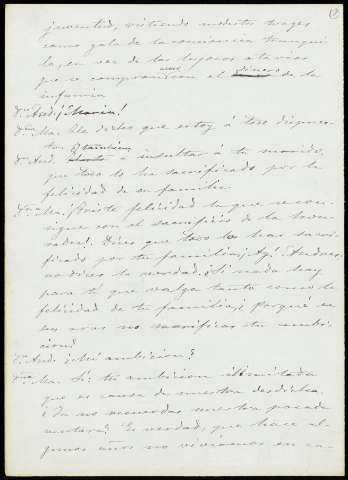 12
juventud, vistiendo modestos trages
como gala de la conciencia tranqui
la, en vez de los lujosos atavios
que se compran con el dinero de la
infamia
Dn. And. ¡Maria!
Dña. Ma. He dicho que estoy á todo dispues-
ta.
Dn. And. Y tambien á insultar á tu marido,
que todo lo ha sacrificado por la
felicidad de su familia.
Dña. Ma. ¡Triste felicidad la que se con-
sigue con el sacrificio de la honra
! Dices que todo lo has sacri-
ficado por tu familia; ¡Ay! Andres,
no dices la verdad. ¿Si nada hay
para tí que valga tanto como la
felicidad de tu familia, ¿Porqué en
sus aras no sacrificas tu ambi-
cion?
Dn. And. ¿Mi ambicion?
Dña. Ma. Sí: tu ambicion ilimitada
que es causa de nuestra desdicha.
¿Ya no recuerdas nuestra pasada
ventura? Es verdad, que hace al-
gunos años no viviamos en ca-